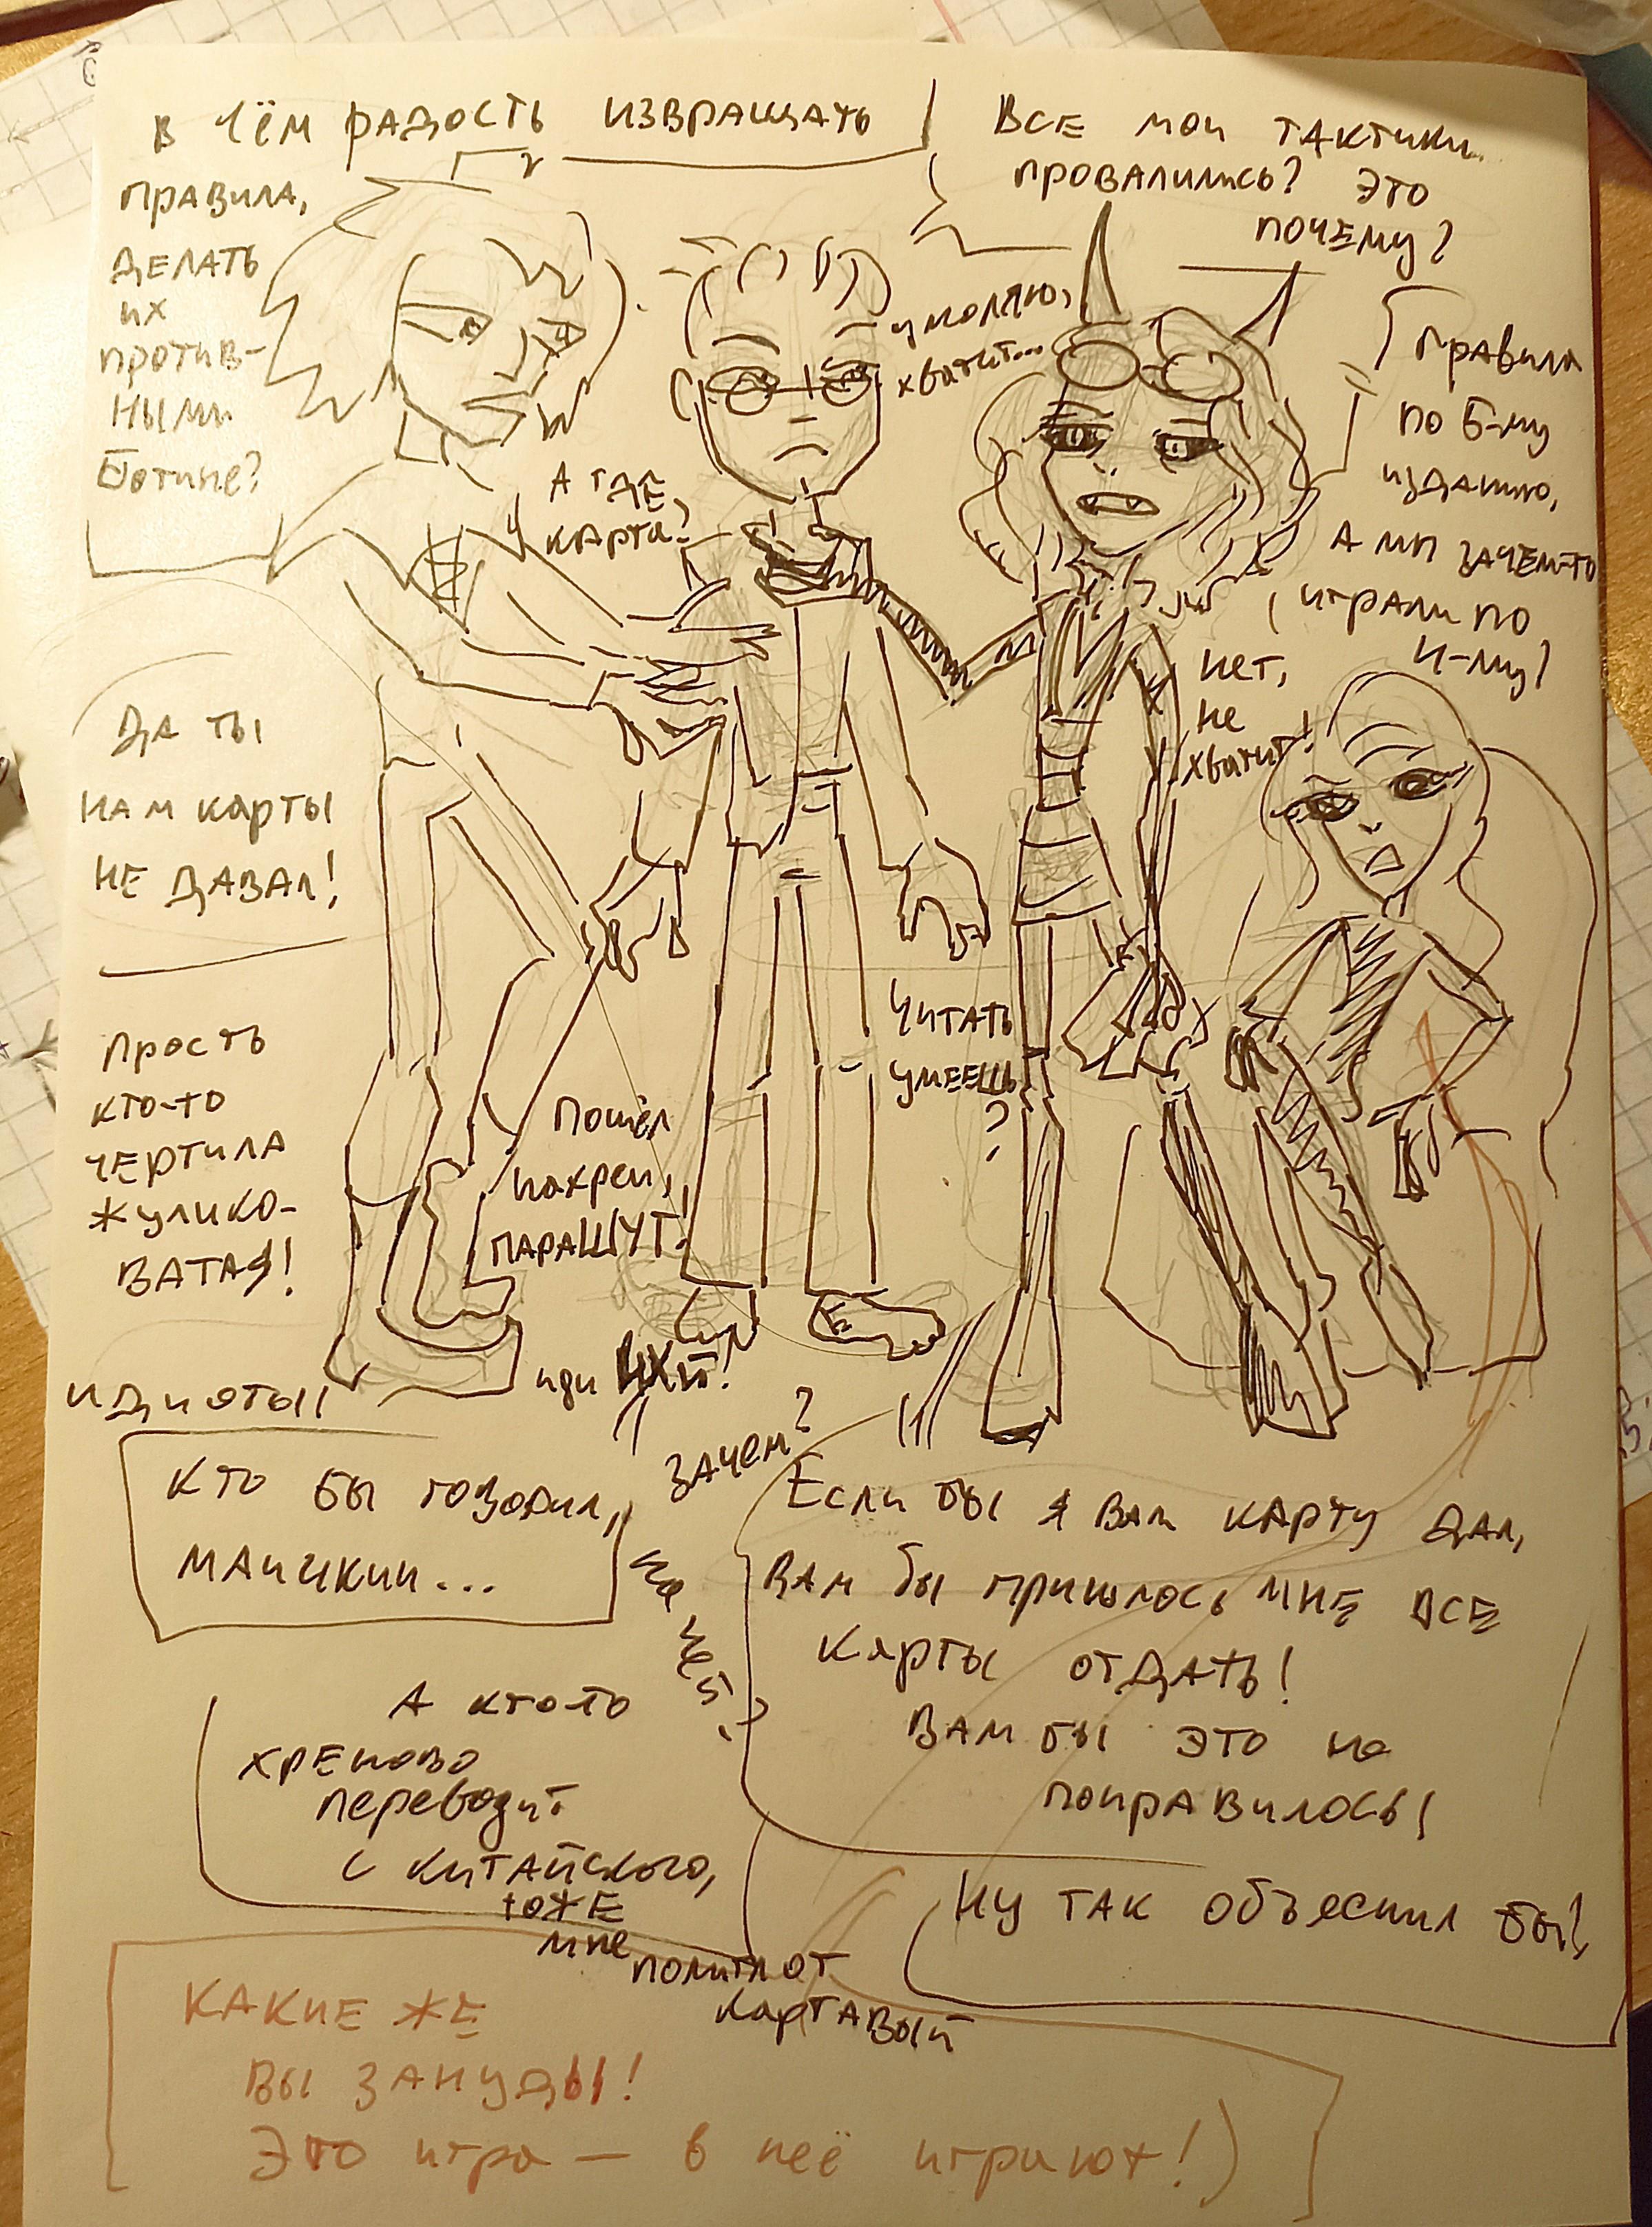 В ЧЁМ РАДОСТЬ ИЗВРАЩАТЬ
ПРАВИЛА,
ДЕЛАТЬ
ИХ
ПРОТИВ-
НЫМИ
ВСЕ МОИ ТАКТИКИ
ПРОВАЛИЛИСЬ? ЭТО
ПОЧЕМУ?
УМОЛЯЮ,
ХВАТИТ...
Правила
по 5-му
изданию,
А МЫ ЗАЧЕМ-ТО
ИГРАЛИ ПО
4-му?
А ГДЕ
КАРТА?
НЕТ,
НЕ
ХВАТИТ!
ДА ТЫ
НАМ КАРТЫ
НЕ ДАВАЛ!
ЧИТАТЬ
УМЕЕШЬ
?
ПРОСТЬ
КТО-ТО
ЧЕРТИЛА
ЖУЛИКО-
ВАТАЯ!
ПОШЁЛ
НАХРЕН,
ПАРАШЮТ!
ИДИ
ИДИОТЫ!
ЗАЧЕМ?
КТО БЫ ГОВОРИЛ,
МАЙНКИН...
ЕСЛИ БЫ Я ВАМ КАРТУ ДАЛ,
ВАМ БЫ ПРИШЛОСЬ МНЕ ВСЕ
КАРТЫ ОТДАТЬ!
ВАМ БЫ ЭТО НЕ
ПОНРАВИЛОСЬ!
А КТО-ТО
ХРЕНОВО
ПЕРЕВОДИТ
С КИТАЙСКОГО,
ТОЖЕ
МНЕ
ПОЛИГЛОТ
КАРТАВЫЙ
НУ ТАК ОБЪЕСНИЛ БЫ!
КАКИЕ ЖЕ
ВЫ ЗАНУДЫ!
ЭТО ИГРА — В НЕЁ ИГРАЮТ!)